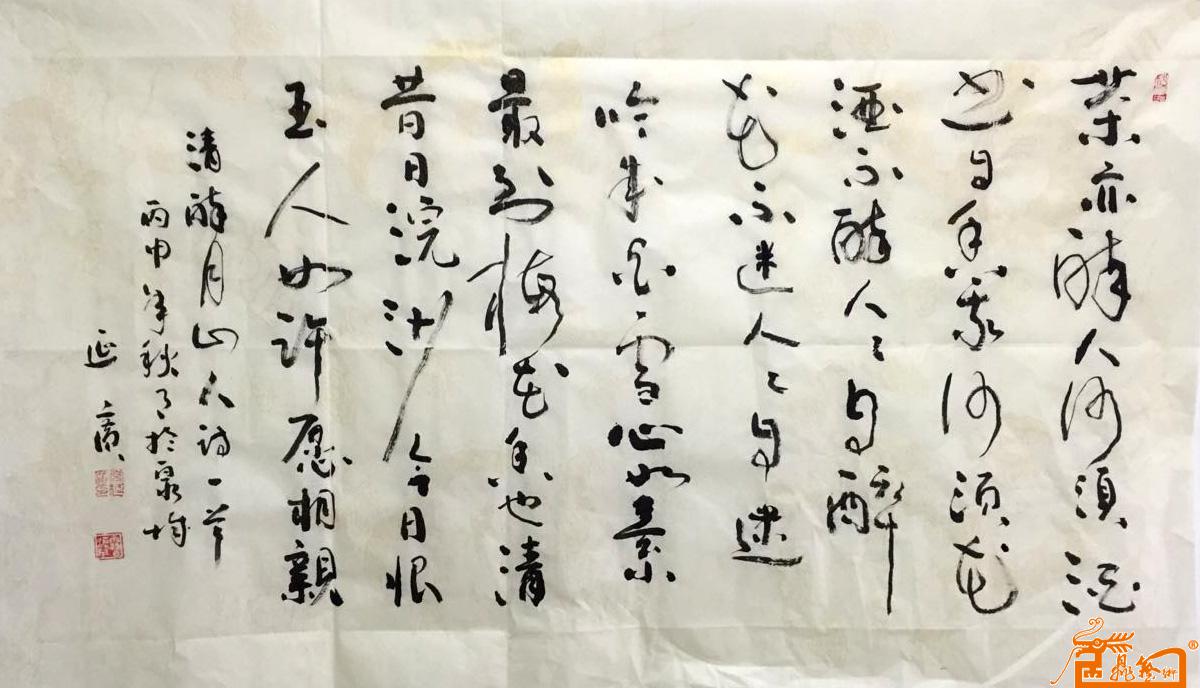 茶亦醉人何须酒
书自香我何须花
酒不醉人々自醉
花不迷人々自迷
吟成白雪心如素
最到梅花香也清
昔日浣沙今日恨
玉人如许愿相親
清醉月山人诗一首
丙申年秋月於泉城
延廣